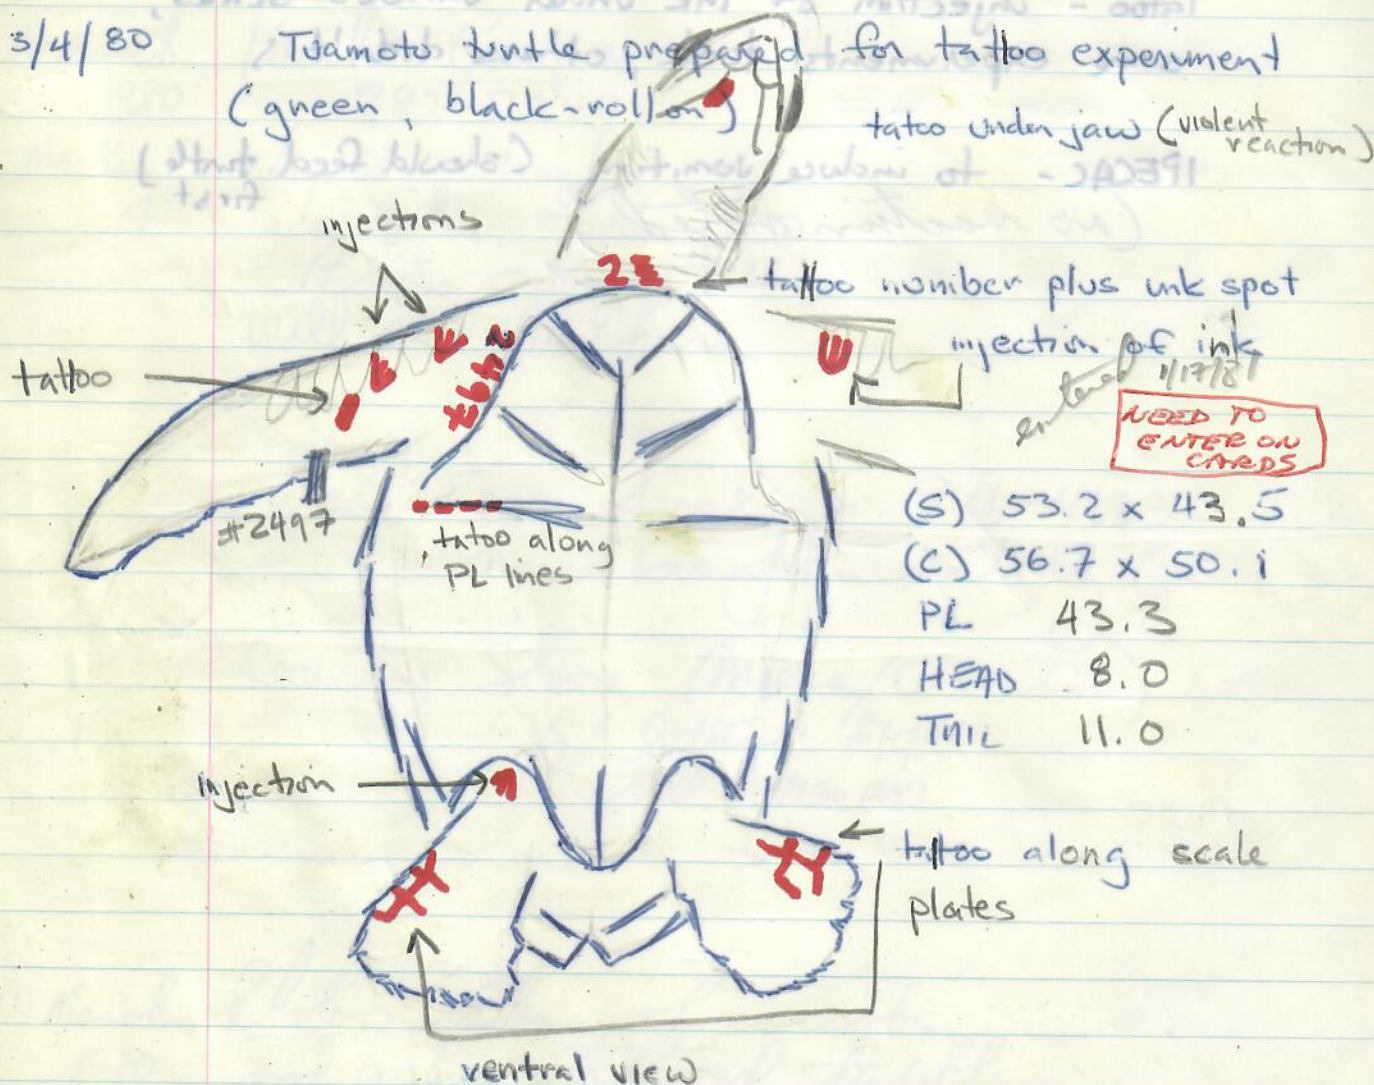 3/4/80 Tuamoto turtle prepared for tattoo experiment
(green, black-roll on)
tatoo under jaw (violent
reaction)
injections
2
tattoo number plus ink spot
injection of ink
entered 1/17/81
tattoo
NEED TO
ENTER ON
CARDS
#2497
tatoo along
PL lines
(S) 53.2 x 43.5
(C) 56.7 x 50.1
PL 43.3
HEAD 8.0
TAIL 11.0
injection
tattoo along scale
plates
ventral view